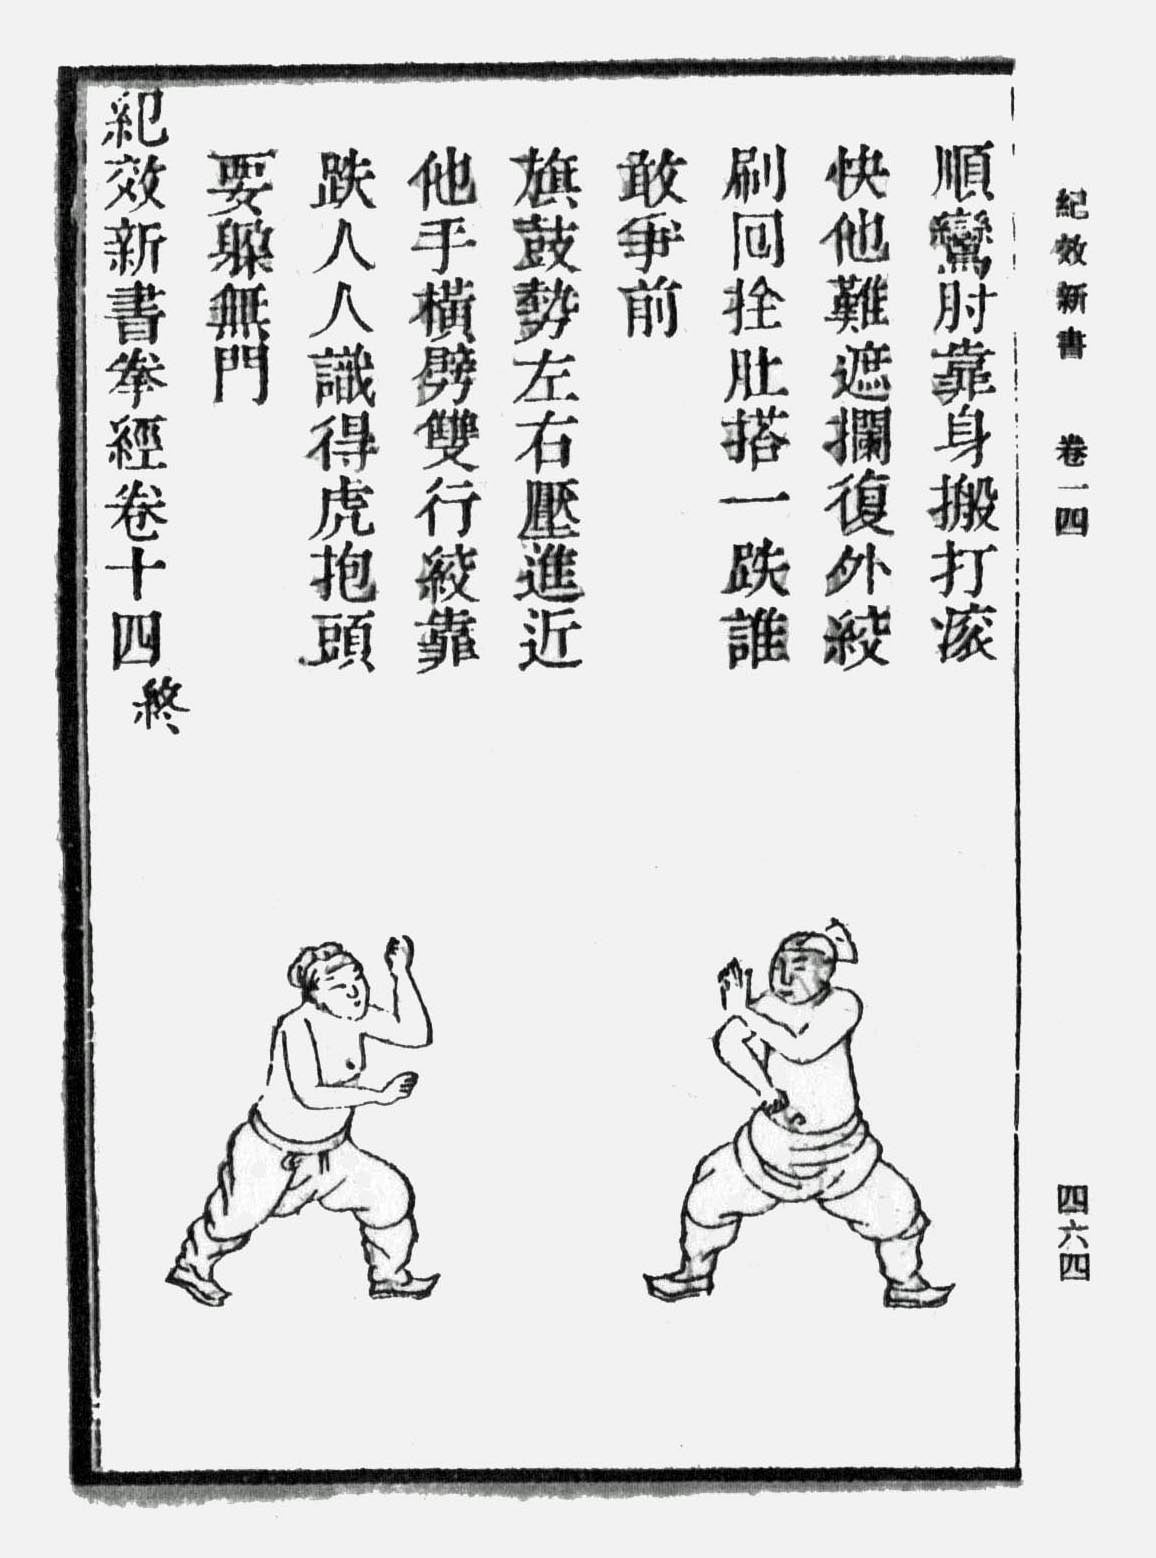 紀效新書 卷一四
順鸞肘靠身搬打滾
快他難遮攔復外絞
刷回拴肚搭一跌誰
敢爭前
旗鼓勢左右壓進近
他手橫劈雙行絞靠
跌人人識得虎抱頭
要躲無門
紀效新書拳經卷十四終
四六四